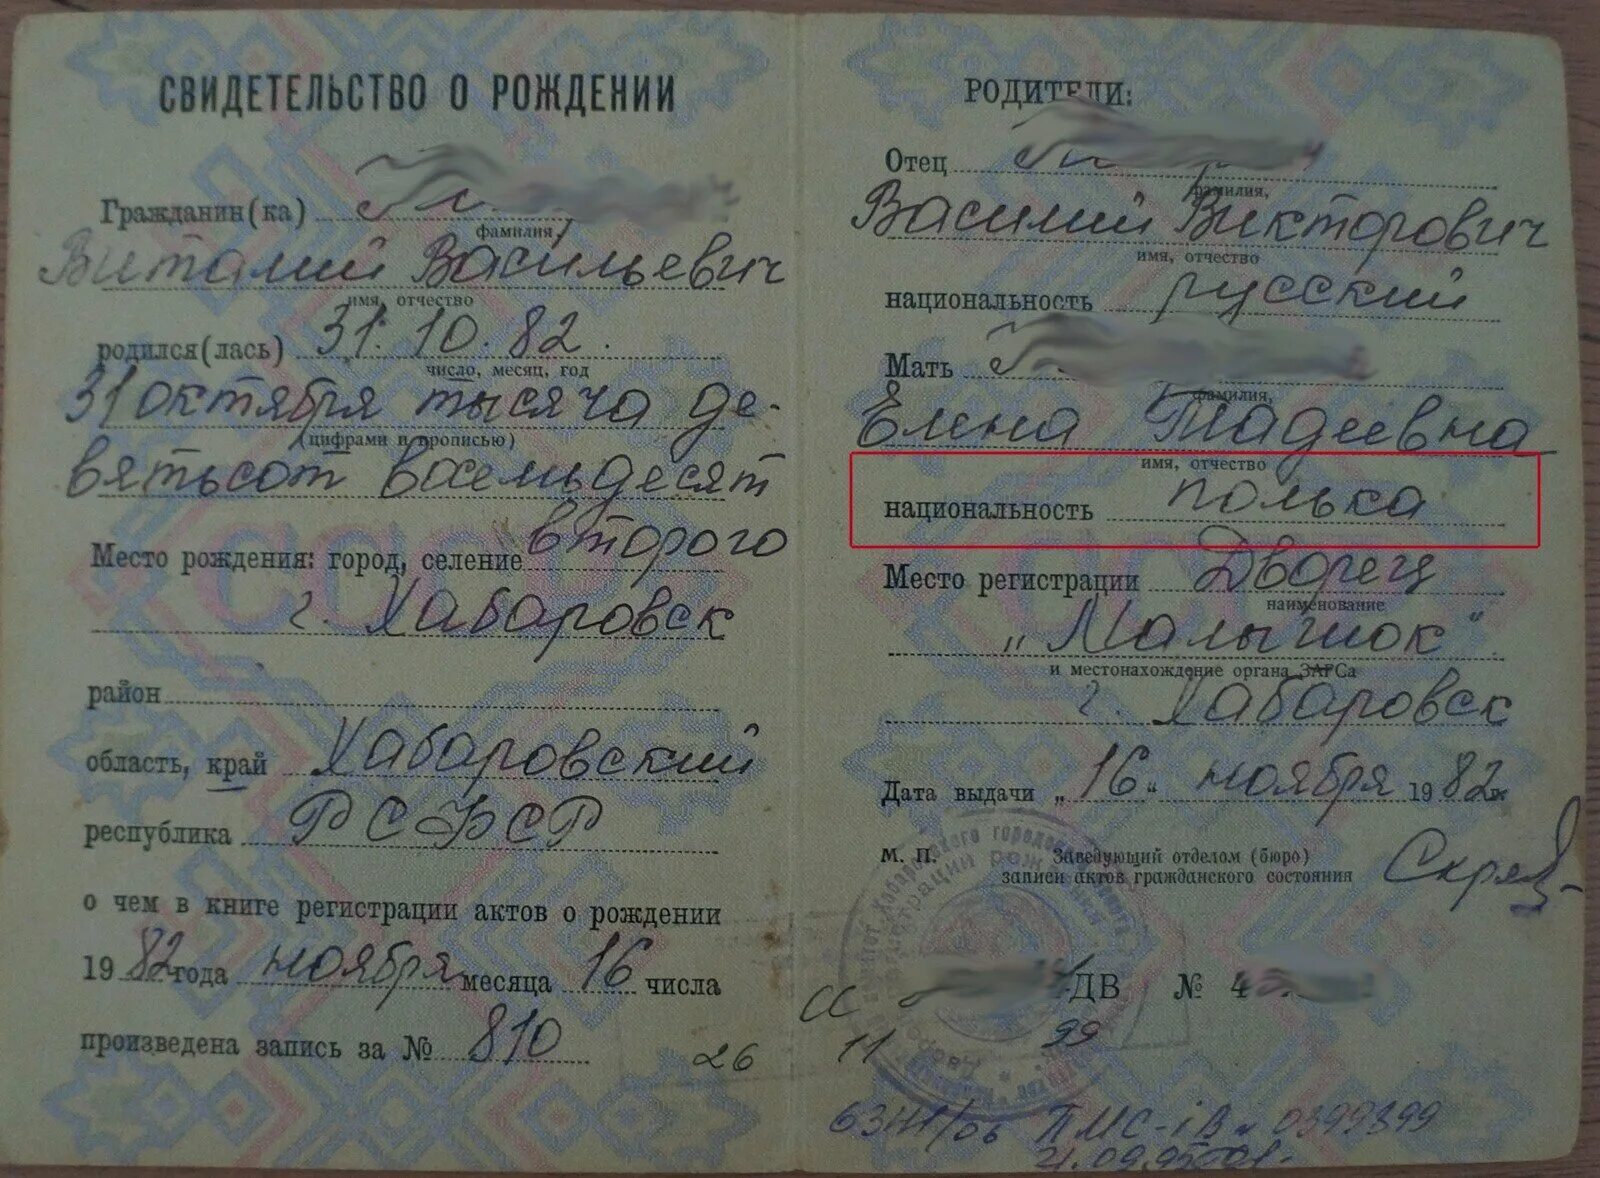 СВИДЕТЕЛЬСТВО О РОЖДЕНИИ
Гражданин(ка)
фамилия
Виталий Васильевич
имя, отчество
родился(лась) 31. 10. 82.
число, месяц, год
31 октября тысяча де-
(цифрами и прописью)
вятьсот восемьдесят
второго
Место рождения: город, селение
г. Хабаровск
район
область, край Хабаровский
республика РСФСР
о чем в книге регистрации актов о рождении
1982 года ноября месяца 16 числа
произведена запись за № 810
26
РОДИТЕЛИ:
Отец
фамилия,
Василий Викторович
имя, отчество
национальность русский
Мать
фамилия,
Елена Тадеевна
имя, отчество
национальность полька
Место регистрации Дворец
наименование
„Малышок"
и местонахождение органа ЗАГСа
г. Хабаровск
Дата выдачи „16" ноября 1982
М. П. Заведующий отделом (бюро)
записи актов гражданского состояния
ДВ № 4
СС
11 99
СССР
СССР